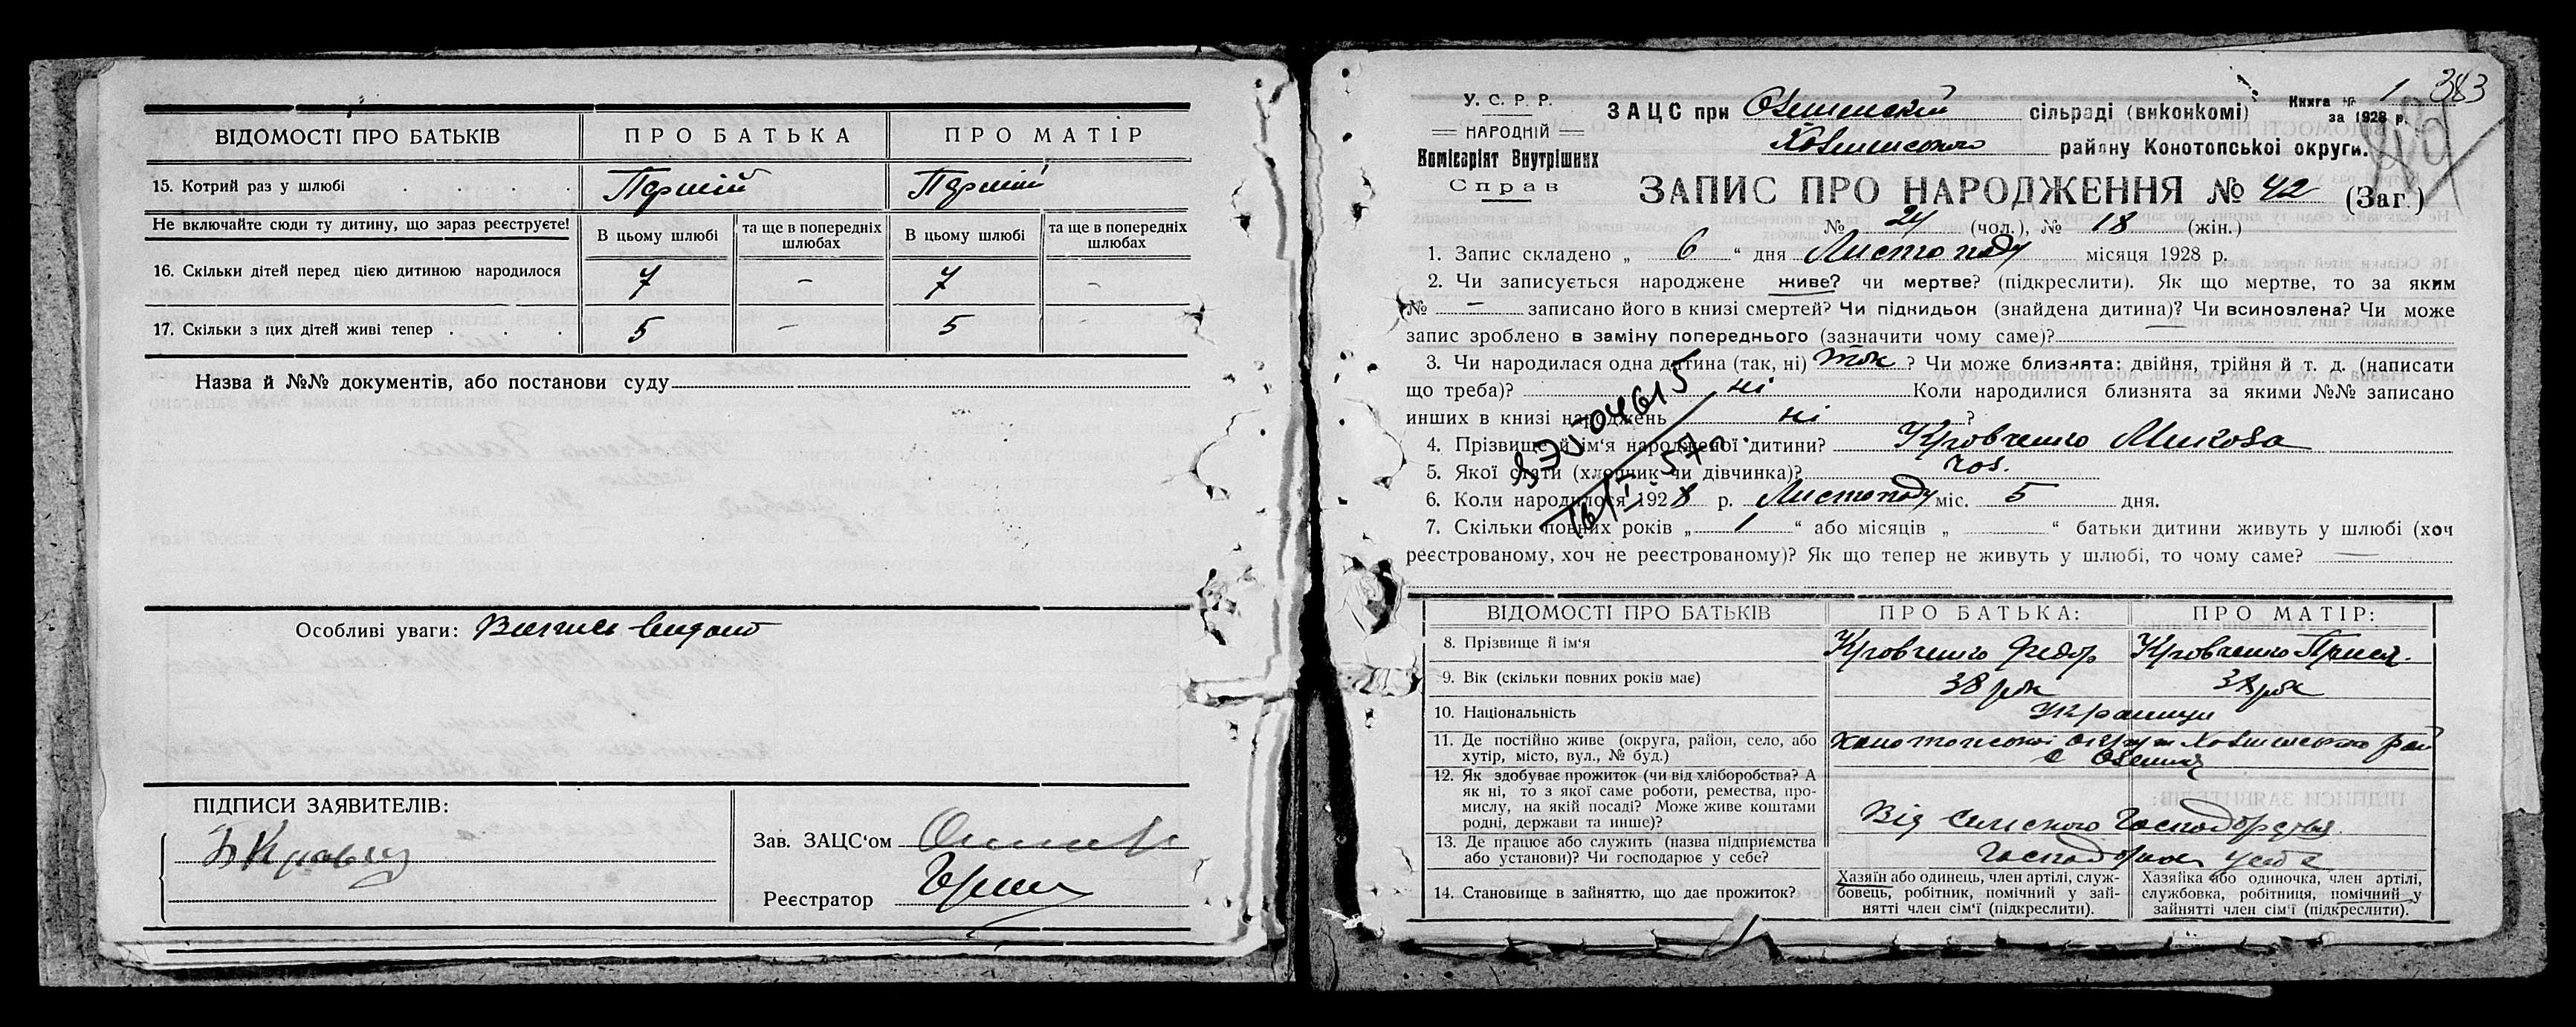 ВІДОМОСТІ ПРО БАТЬКІВ
ПРО БАТЬКА
ПРО МАТІР
15. Котрий раз у шлюбі
Перший
Перший
Не включайте сюди ту дитину, що зараз реєструєте!
В цьому шлюбі
та ще в попередніх шлюбах
В цьому шлюбі
та ще в попередніх шлюбах
16. Скільки дітей перед цією дитиною народилося
7 - 7 -
17. Скільки з цих дітей живі тепер . . .
5 - 5 -
Назва й №№ документів, або постанови суду
Особливі уваги:
ПІДПИСИ ЗАЯВИТЕЛІВ:
Зав. ЗАЦС'ом
Реєстратор
У. С. Р. Р.
НАРОДНІЙ
Комісаріят Внутрішних
Справ
1 383
Книга №
за 1928 р.
ЗАЦС при сільраді (виконкомі)
району Конотопської округи.
ЗАПИС ПРО НАРОДЖЕННЯ № 42 (Заг.)
№ 24 (чол.), № 18 (жін.)
1. Запис складено „ 6 “ дня Листопаду місяця 1928 р.
2. Чи записується народжене живе? чи мертве? (підкреслити). Як що мертве, то за яким
№ — записано його в книзі смертей? Чи підкидьок (знайдена дитина)? Чи всиновлена? Чи може
запис зроблено в заміну попереднього (зазначити чому саме)?
3. Чи народилася одна дитина (так, ні) так ? Чи може близнята: двійня, трійня й т. д. (написати
що треба)? ні Коли народилися близнята за якими №№ записано
инших в книзі народжень ні ?
4. Прізвище й ім'я народженої дитини? Кровченко Микола
5. Якої статі (хлопчик чи дівчинка)? чол.
6. Коли народилося 1928 р. Листопаду міс. 5 дня.
7. Скільки повних років „ 1 “ або місяців „ “ батьки дитини живуть у шлюбі (хоч
реєстрованому, хоч не реєстрованому)? Як що тепер не живуть у шлюбі, то чому саме? —
ВІДОМОСТІ ПРО БАТЬКІВ
ПРО БАТЬКА:
ПРО МАТІР:
8. Прізвище й ім'я
Кровченко Федор
Кровченко Прися.
9. Вік (скільки повних років має)
38 рок
38 рок
10. Національність
Українци
11. Де постійно живе (округа, район, село, або
хутір, місто, вул., № буд.)
12. Як здобуває прожиток (чи від хліборобства? А
як ні, то з якої саме роботи, ремества, про-
мислу, на якій посаді? Може живе коштами
родні, держави та инше)?
Від сельского Господарства.
13. Де працює або служить (назва підприємства
або установи)? Чи господарює у себе?
14. Становище в зайняттю, що дає прожиток?
Хазяїн або одинець, член артілі, служ-
бовець, робітник, помічний у зай-
нятті член сім'ї (підкреслити).
Хазяйка або одиночка, член артілі,
службовка, робітниця, помічний у
зайнятті член сім'ї (підкреслити).